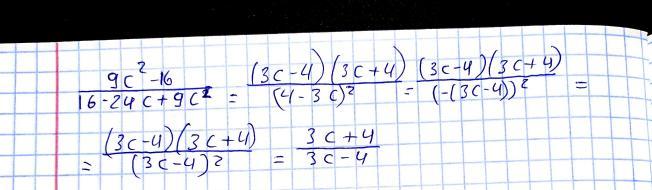 (9c² - 16)/(16 - 24c + 9c²) = ((3c-4)(3c+4))/((4-3c)²) = ((3c-4)(3c+4))/((-(3c-4))²) =
= ((3c-4)(3c+4))/((3c-4)²) = (3c+4)/(3c-4)